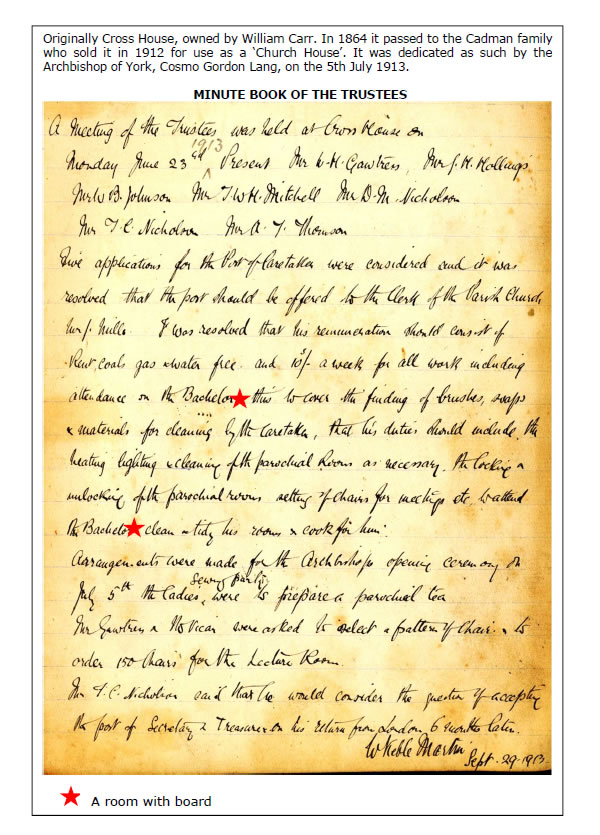 Originally Cross House, owned by William Carr. In 1864 it passed to the Cadman family
who sold it in 1912 for use as a ‘Church House’. It was dedicated as such by the
Archbishop of York, Cosmo Gordon Lang, on the 5th July 1913.
MINUTE BOOK OF THE TRUSTEES
A Meeting of the Trustees was held at Cross House on
1913
Monday June 23rd Present Mr W. H. Gawtress, Mr J. H. Hollings
Mr W B. Johnson Mr T. W. H. Mitchell Mr D. M. Nicholson
Mr T. C. Nicholson Mr A. T. Thomson
Five applications for the Post of Caretaker were considered and it was
resolved that the post should be offered to the Clerk of the Parish Church
Mr J. Mills. It was resolved that his remuneration should consist of
Rent, coals gas & water free and 10/- a week for all work including
attendance on the Bachelor this to cover the finding of brushes, soaps
& materials for cleaning by the caretaker, that his duties should include the
heating lighting & cleaning of the parochial Rooms as necessary, the locking &
unlocking of the parochial rooms setting of chairs for meetings etc. to attend
the Bachelor clean & tidy his rooms & cook for him.
Arrangements were made for the Archbishops opening ceremony on
sewing party
July 5th the Ladies were to prepare a parochial tea
Mr Gawtress & the Vicar were asked to select a pattern of chair & to
order 150 chairs for the Lecture Room.
Mr T. C. Nicholson said that he would consider the question of accepting
the post of Secretary & Treasurer on his return from London 6 months later.
W Keble Martin
Sept. 29. 1913
A room with board